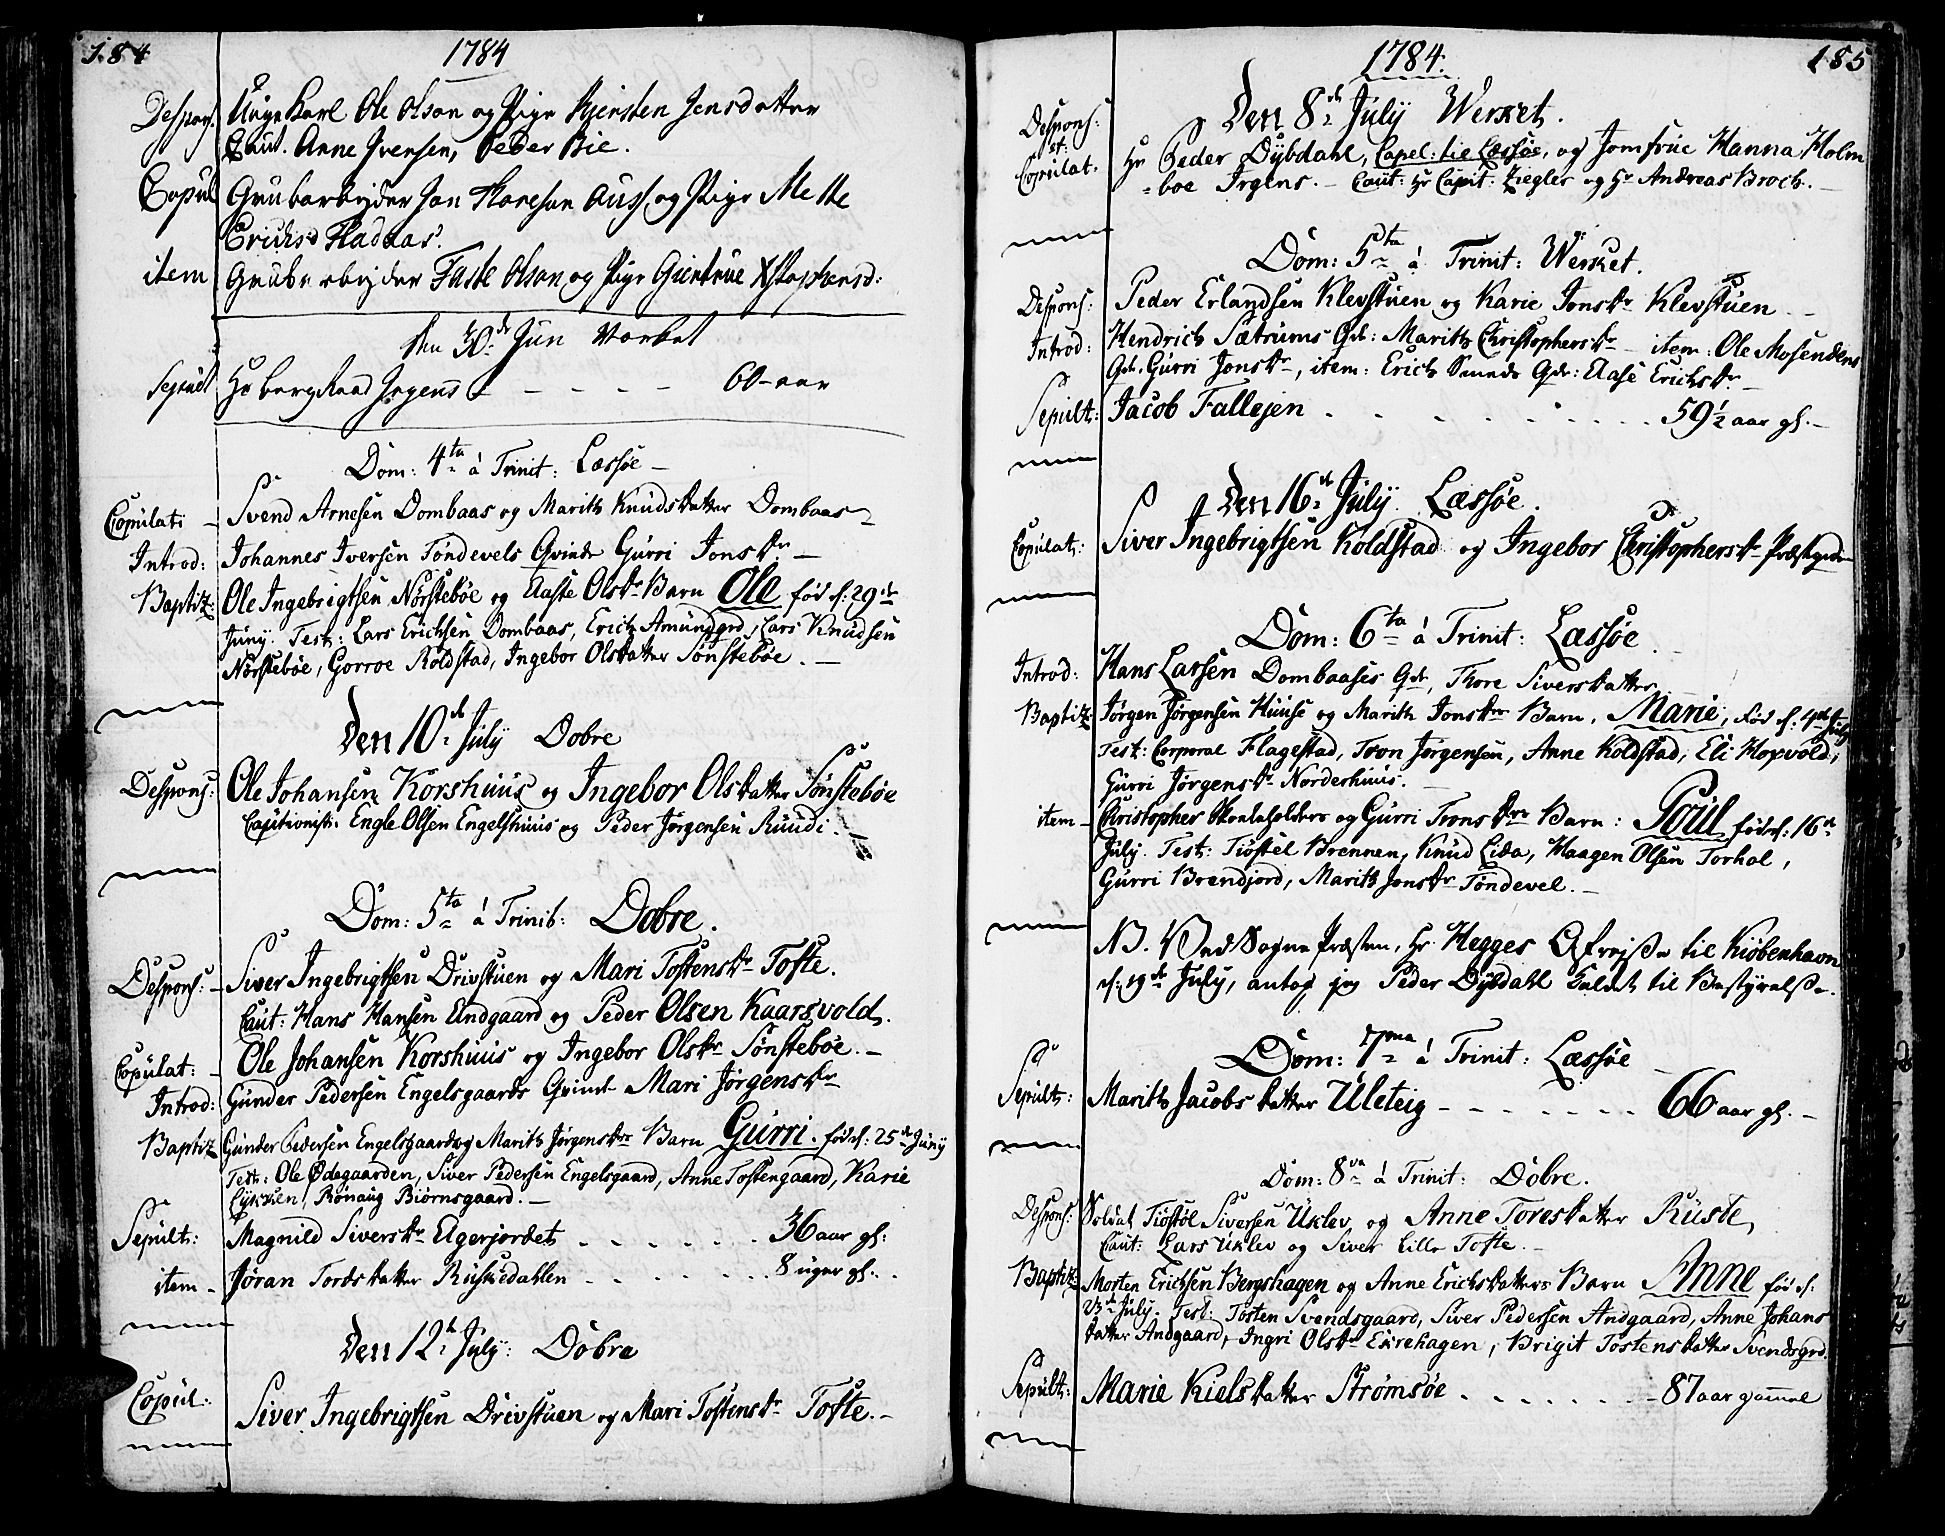 184
1784
Despons. Unge Karl Ole Olson og Pige Kjersten Jensdatter
Caut. Anne Ivensen, Peder Bie.
Copul Grubarbejder Jon Haresen Aus og Pige Mette
Erichsd Fladaas.
item Grubarbejder Faste Olson og Pige Giertrue Xstophersd:
den 30de Jun Verket
Sepult Hr bergRaad Irgens - - - - 60 - aar
Dom: 4ta á Trinit: Læssøe -
Copulati - Svend Arnesen Dombaas og Marith Knudsdatter Dombaas
Introd: Johannes Iversen Tøndevels Qvinde Gurri Jonsdr -
Baptiz: Ole Ingebrigtsen Nørstebøe og Aaste Olsdr Barn Ole fød d: 29de
Juny. Test: Lars Erichsen Dombaas, Erich Amundgrd, Lars Knudsen
Nørstebøe, Gorroe Koldstad, Ingebor Olsdatter Sønstebøe. -
Den 10de July Dobre
Despons: Ole Johansen Korshuus og Ingebor Olsdatter Sønstebøe
Cautionist: Engle Olsen Engelshuus og Peder Jørgensen Ruudi.
Dom: 5ta á Trinit: Dobre.
Despons: - Siver Ingebrigtsen Drivstuen og Mari Tostensdr Tofte.
Caut: Hans Hansen Endgaard og Peder Olsen Kaarsvold.
Copulat: - Ole Johansen Korshuus og Ingebor Olsdr Sønstebøe. -
Introd: Gunder Pedersen Engelsgaards Qvinde Mari Jørgensdr
Baptiz Gunder Pedersen Engelsgaard og Marith Jørgensdr Barn Gurri. fød d: 25de Juny
Test: Ole Ødegaarden, Siver Pedersen Engelsgaard, Anne Tostengaard, Karie
Lykkien, Rønaug Biørnsgaard. -
Sepult: Magnild Siversdr Elgerjordet - - - - - - 36 aar gl:
item - Jøran Tordsdatter Ruskedahlen - - - - - - 8 uger gl:
Den 12te July: Dobre
Copul: Siver Ingebrigtsen Drivstuen og Mari Tostensdr Tofte. -
1784.
185
Den 8de July Werket.
Despons: et: Copulat. Hr Peder Dybdahl, Capel: til Læssøe, og Jomfrue Hanna Holm
=boe Irgens. - Caut: Hr Capit: Ziegler og Hr Andreas Broch. -
Dom: 5ta á Trinit: Werket.
Despons: Peder Erlandsen Klevstuen og Karie Jonsdr Klevstuen - -
Introd: Hendrich Sætrums Qv: Marith Christophersdr - item: Ole Mosendens
Qv. Gurri Jonsdr, item: Erich Smeds Qv: Aase Erichsdr. -
Sepult: Jacob Fallesen - - - - - - - 59 1/2 aar gl. -
Den 16de July. Læssøe.
Copulat: Siver Ingebrigtsen Koldstad og Ingebor Christophersdr Præstgrd
Dom: 6ta á Trinit: Læssøe.
Introd: Hans Larsen Dombaases Qv, Thore Siversdatter
Baptiz: Jørgen Jørgensen Huuse og Marith Jonsdr Barn, Marie, fød d: 4de July
Test: Corporal Flagestad, Tron Jørgensen, Anne Koldstad, Eli Hoxvold,
Gurri Jørgensdr Norderhuus. -
item - Christopher Skoleholder og Gurri Tronsdr Barn: Poul fød d: 16de
July. Test: Tiøstel Brennen, Knud Lida, Haagen Olsen Torhol,
Gurri Brendjord, Marith Jonsdr Tøndevel. -
NB. Ved SognePræsten, Hr. Hegges Afrejse til Kiøbenhavn
d: 19de July, antog jeg Peder Dybdahl Kaldet til Bestyrelse.
Dom: 7ma á Trinit: Læssøe
Sepult: Marith Jacobsdatter Uleteig - - - - - - 66 aar gl. -
Dom: 8va á Trinit: Dobre.
Despons: Soldat Tiøstøl Siversen Uklev og Anne Toresdatter Ruste,
Caut: Lars Uklev og Siver Lille Tofte. -
Baptiz: Morten Erichsen Bergshagen og Anne Erichsdatters Barn Anne fød d:
23de July. Test: Tosten Svendsgaard, Siver Pedersen Andgaard, Anne Johans
datter Andgaard, Ingri Olsdr Ekrehagen, Brigit Tostensdatter Svendsgrd.
Sepult: Marie Kielsdatter Strømsøe - - - - - - 87 aar gamel